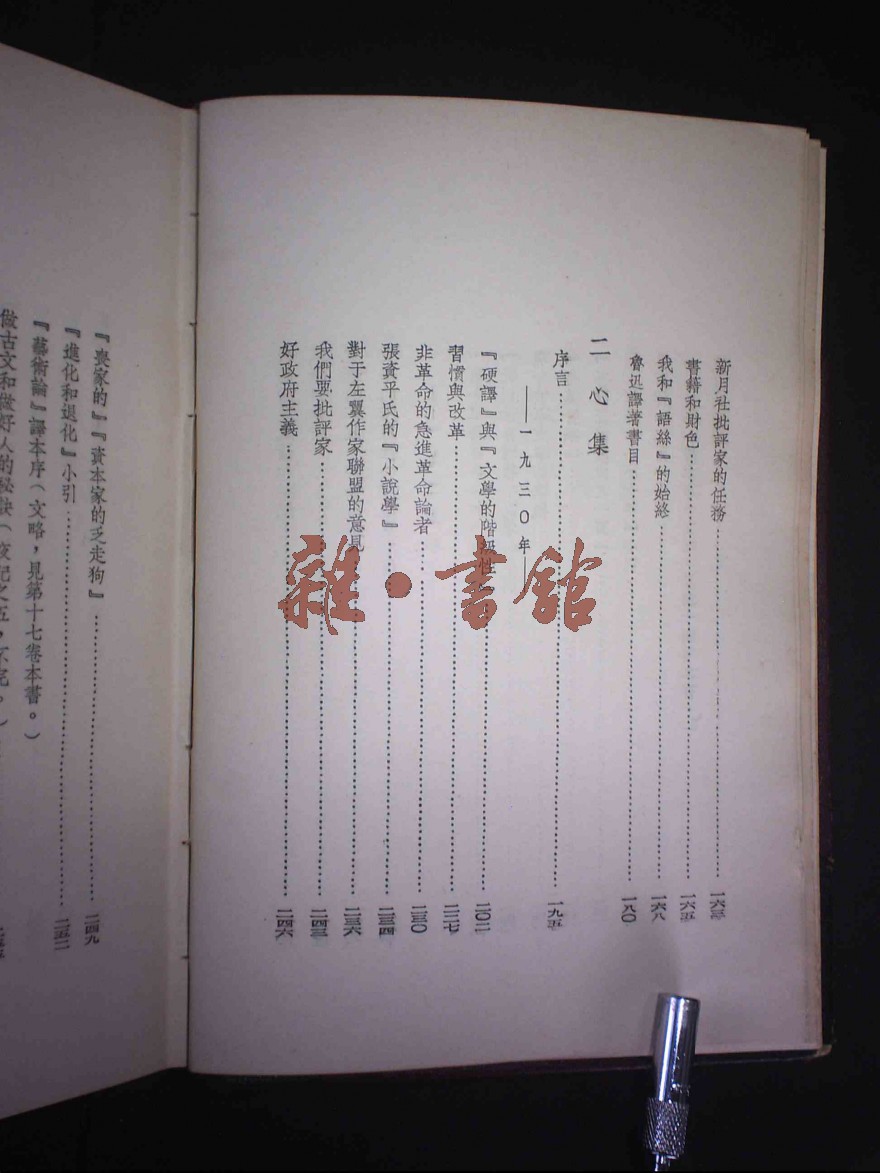 新月社批評家的任務……一六三
書籍和財色……一六五
我和『語絲』的始終……一六八
魯迅譯著書目……一八〇
二心集
序言……一九五
——一九三〇年——
『硬譯』與『文學的階級性』……二〇二
習慣與改革……二二七
非革命的急進革命論者……二三〇
張資平氏的『小說學』……二三四
對于左翼作家聯盟的意見……二三六
我們要批評家……二四三
好政府主義……二四六
『喪家的』『資本家的乏走狗』……二四九
『進化和退化』小引……二五二
『藝術論』譯本序（文略，見第十七卷本書。）
做古文和做好人的秘訣（夜記之五，不完。）
雜·書館